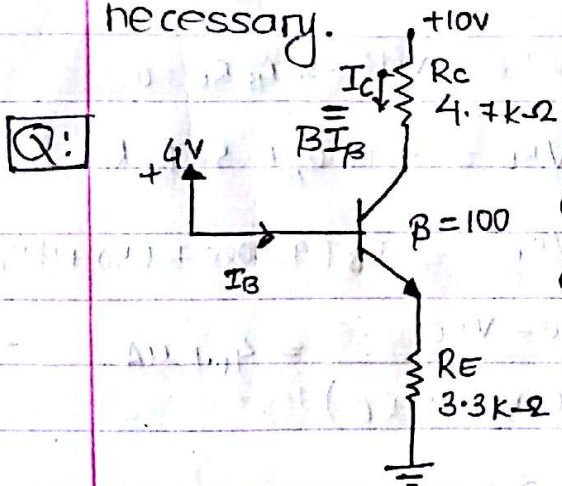 necessary.
+10V
Ic Rc
4.7kΩ
=
βIβ
Q:
+4V
β=100
IB
RE
3.3kΩ